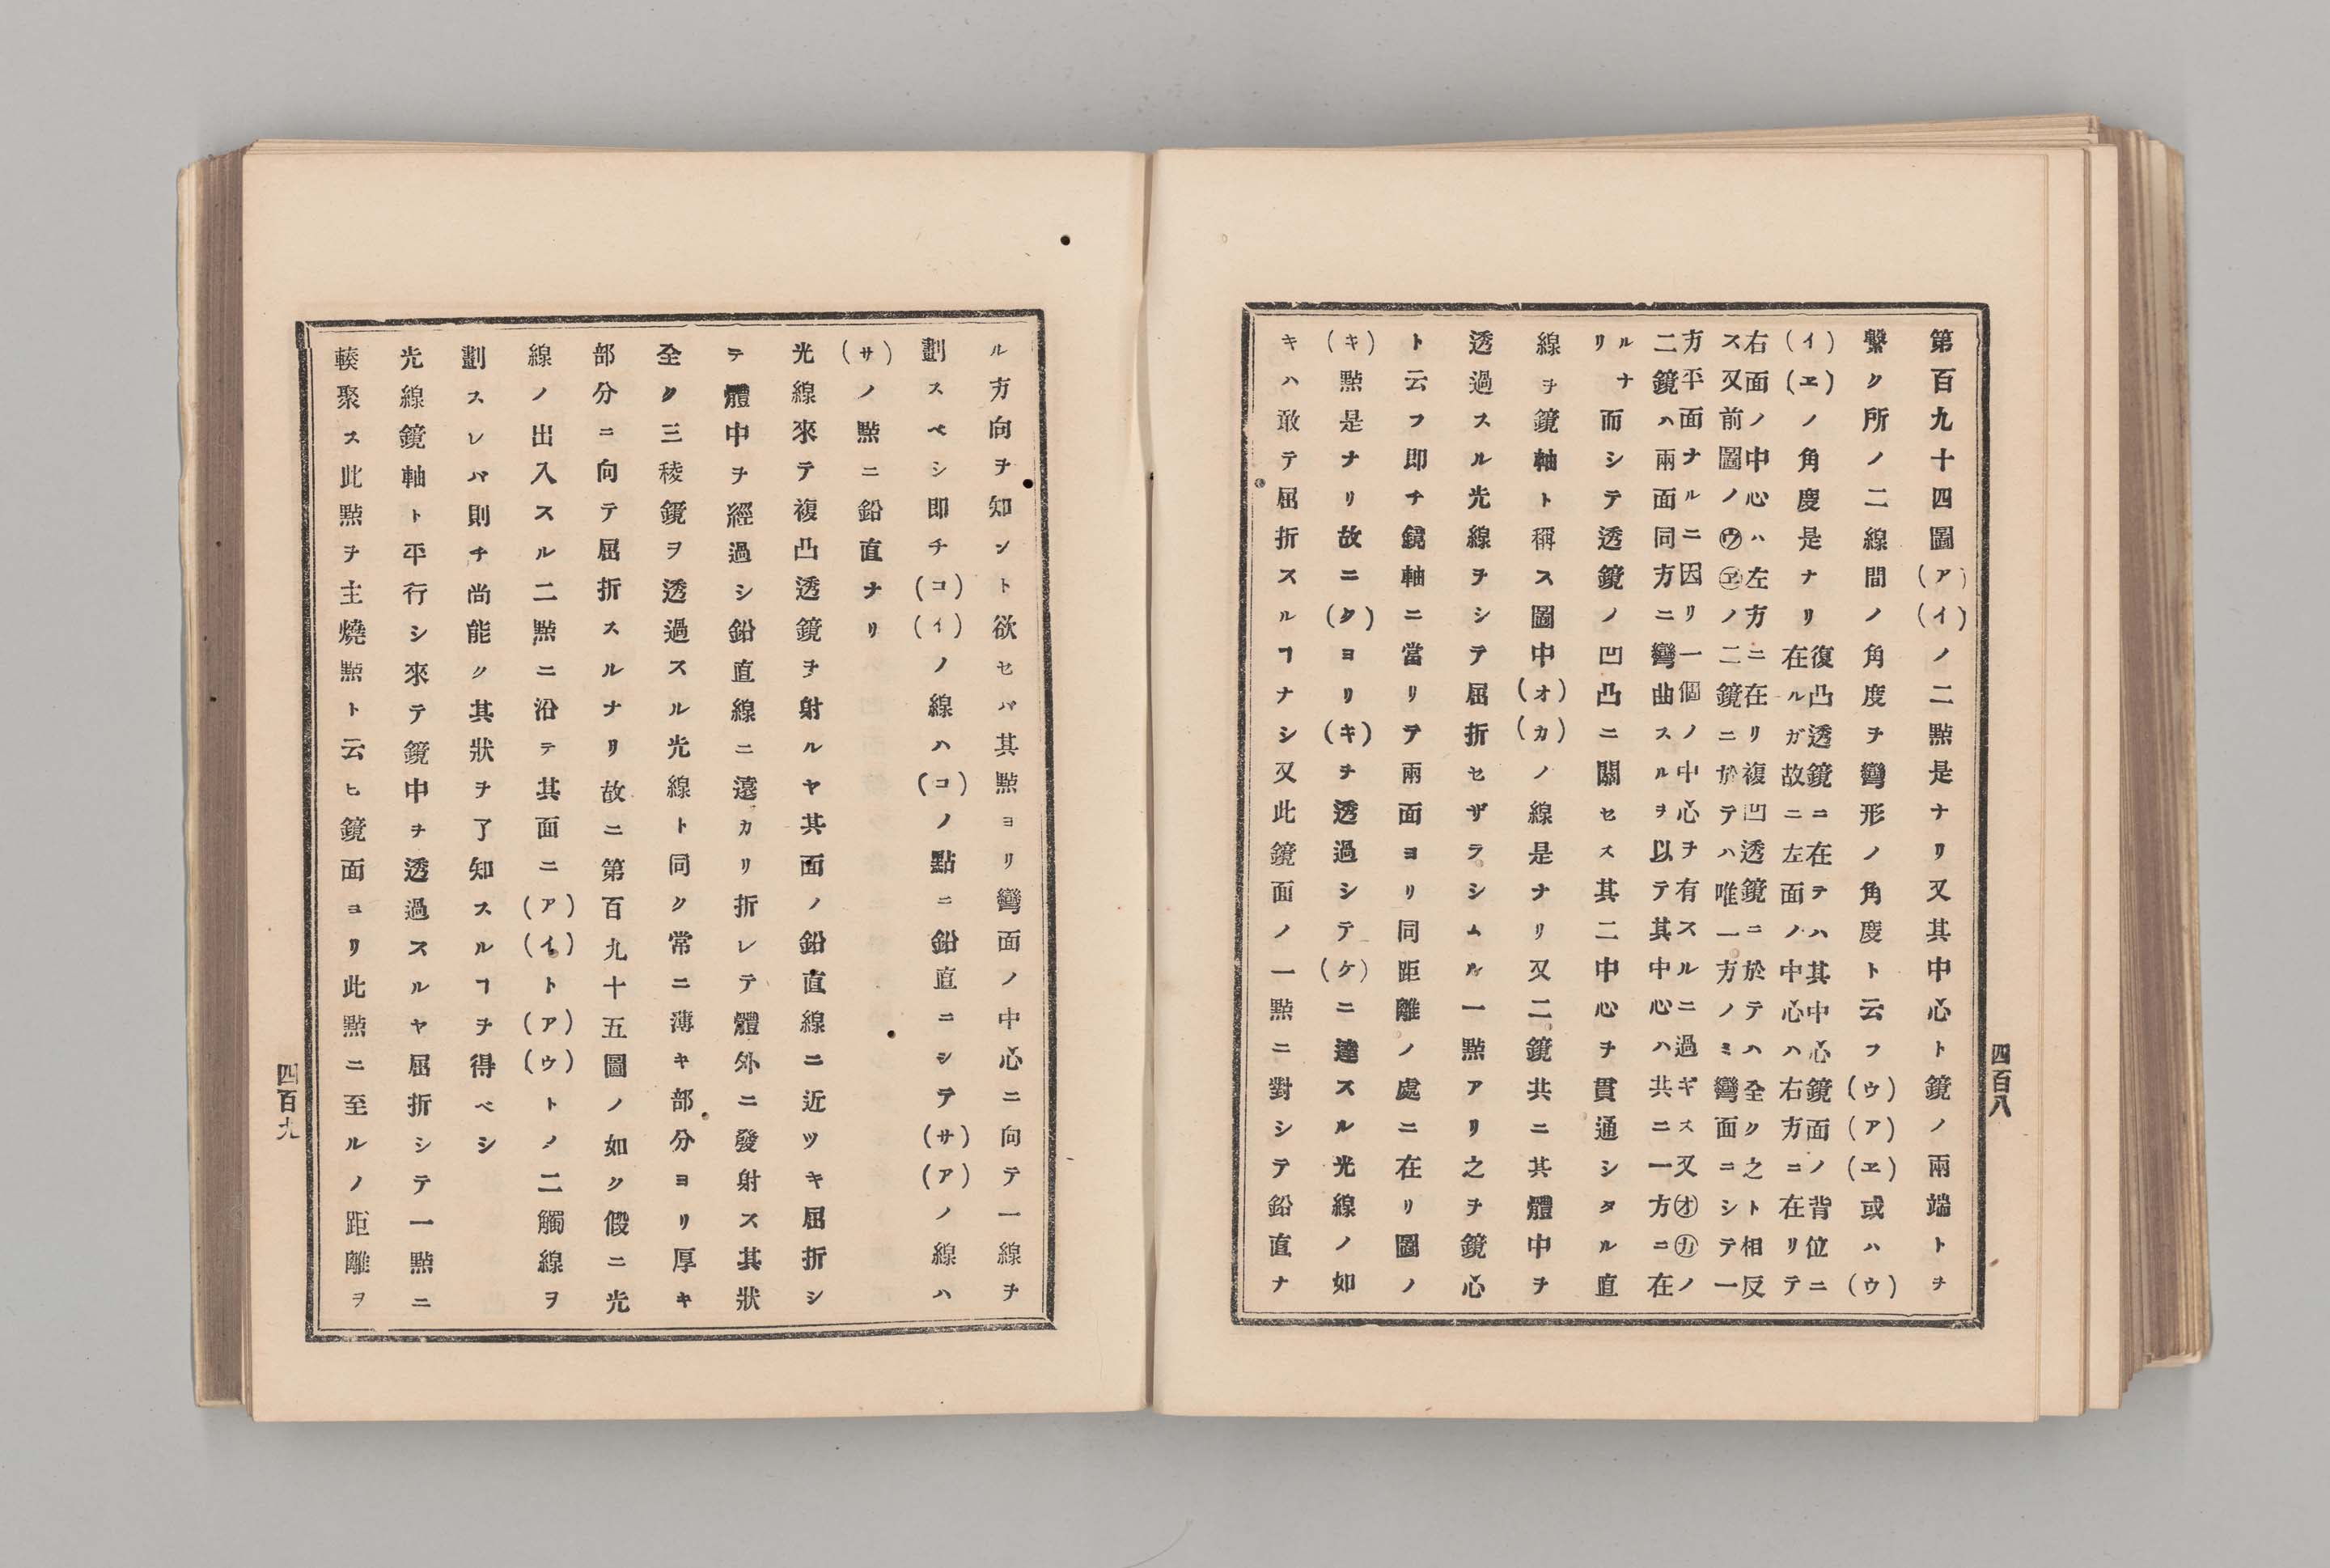 四百八
第百九十四圖(ア)(イ)ノ二點是ナリ又其中心ト鏡ノ兩端トヲ
繫ク所ノ二線間ノ角度ヲ彎形ノ角度ト云フ(ウ)(ア)(ヱ)或ハ(ウ)
(イ)(ヱ)ノ角度是ナリ
復凸透鏡ニ在テハ其中心鏡面ノ背位ニ
在ルガ故ニ左面ノ中心ハ右方ニ在リテ
右面ノ中心ハ左方ニ在リ複凹透鏡ニ於テハ全ク之ト相反
ス又前圖ノ㋒㋽ノ二鏡ニ於テハ唯一方ノミ彎面ニシテ一
方平面ナルニ因リ一個ノ中心ヲ有スルニ過ギス又㋔㋕ノ
二鏡ハ兩面同方ニ彎曲スルヲ以テ其中心ハ共ニ一方ニ在
ルナ
リ
而シテ透鏡ノ凹凸ニ關セス其二中心ヲ貫通シタル直
線ヲ鏡軸ト稱ス圖中(オ)(カ)ノ線是ナリ又二鏡共ニ其體中ヲ
透過スル光線ヲシテ屈折セザラシムル一點アリ之ヲ鏡心
ト云フ即チ鏡軸ニ當リテ兩面ヨリ同距離ノ處ニ在リ圖ノ
(キ)點是ナリ故ニ(ク)ヨリ(キ)チ透過シテ(ケ)ニ達スル光線ノ如
キハ敢テ屈折スルヿナシ又此鏡面ノ一點ニ對シテ鉛直ナ
ル方向ヲ知ント欲セバ其點ヨリ彎面ノ中心ニ向テ一線ヲ
劃スベシ即チ(コ)(イ)ノ線ハ(コ)ノ點ニ鉛直ニシテ(サ)(ア)ノ線ハ
(サ)ノ點ニ鉛直ナリ
光線來テ複凸透鏡ヲ射ルヤ其面ノ鉛直線ニ近ツキ屈折シ
テ體中ヲ經過シ鉛直線ニ遠カリ折レテ體外ニ發射ス其狀
全ク三稜鏡ヲ透過スル光線ト同ク常ニ薄キ部分ヨリ厚キ
部分ニ向テ屈折スルナリ故ニ第百九十五圖ノ如ク假ニ光
線ノ出入スル二點ニ沿テ其面ニ(ア)(イ)ト(ア)(ウ)トノ二觸線ヲ
劃スレバ則チ尚能ク其狀ヲ了知スルヿヲ得ベシ
光線鏡軸ト平行シ來テ鏡中ヲ透過スルヤ屈折シテ一點ニ
輳聚ス此點ヲ主燒點ト云ヒ鏡面ヨリ此點ニ至ルノ距離ヲ
四百九